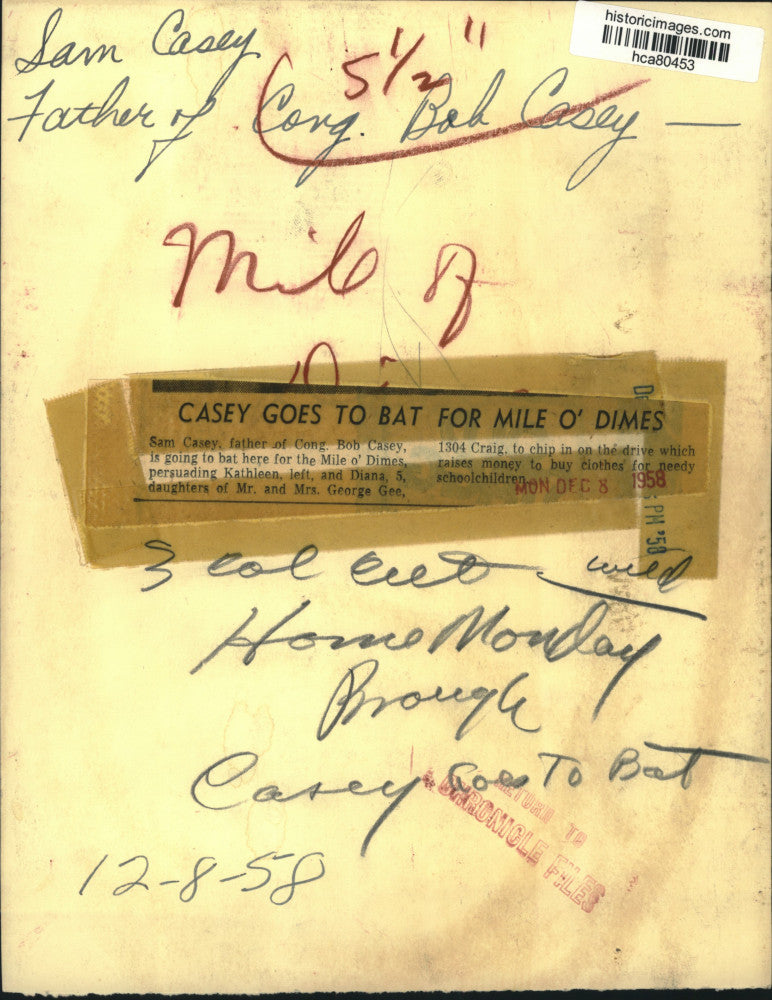 historicimages.com
hca80453
Sam Casey
5 1/2"
Father of Cong. Bob Casey —
Mile of
CASEY GOES TO BAT FOR MILE O' DIMES
Sam Casey, father of Cong. Bob Casey,
is going to bat here for the Mile o' Dimes,
persuading Kathleen, left, and Diana, 5,
daughters of Mr. and Mrs. George Gee,
1304 Craig, to chip in on the drive which
raises money to buy clothes for needy
schoolchildren.
MON DEC 8 1958
PM '58
3 col cut
Home Monday
Brough
Casey Goes To Bat
RETURN TO
CHRONICLE FILES
12-8-58